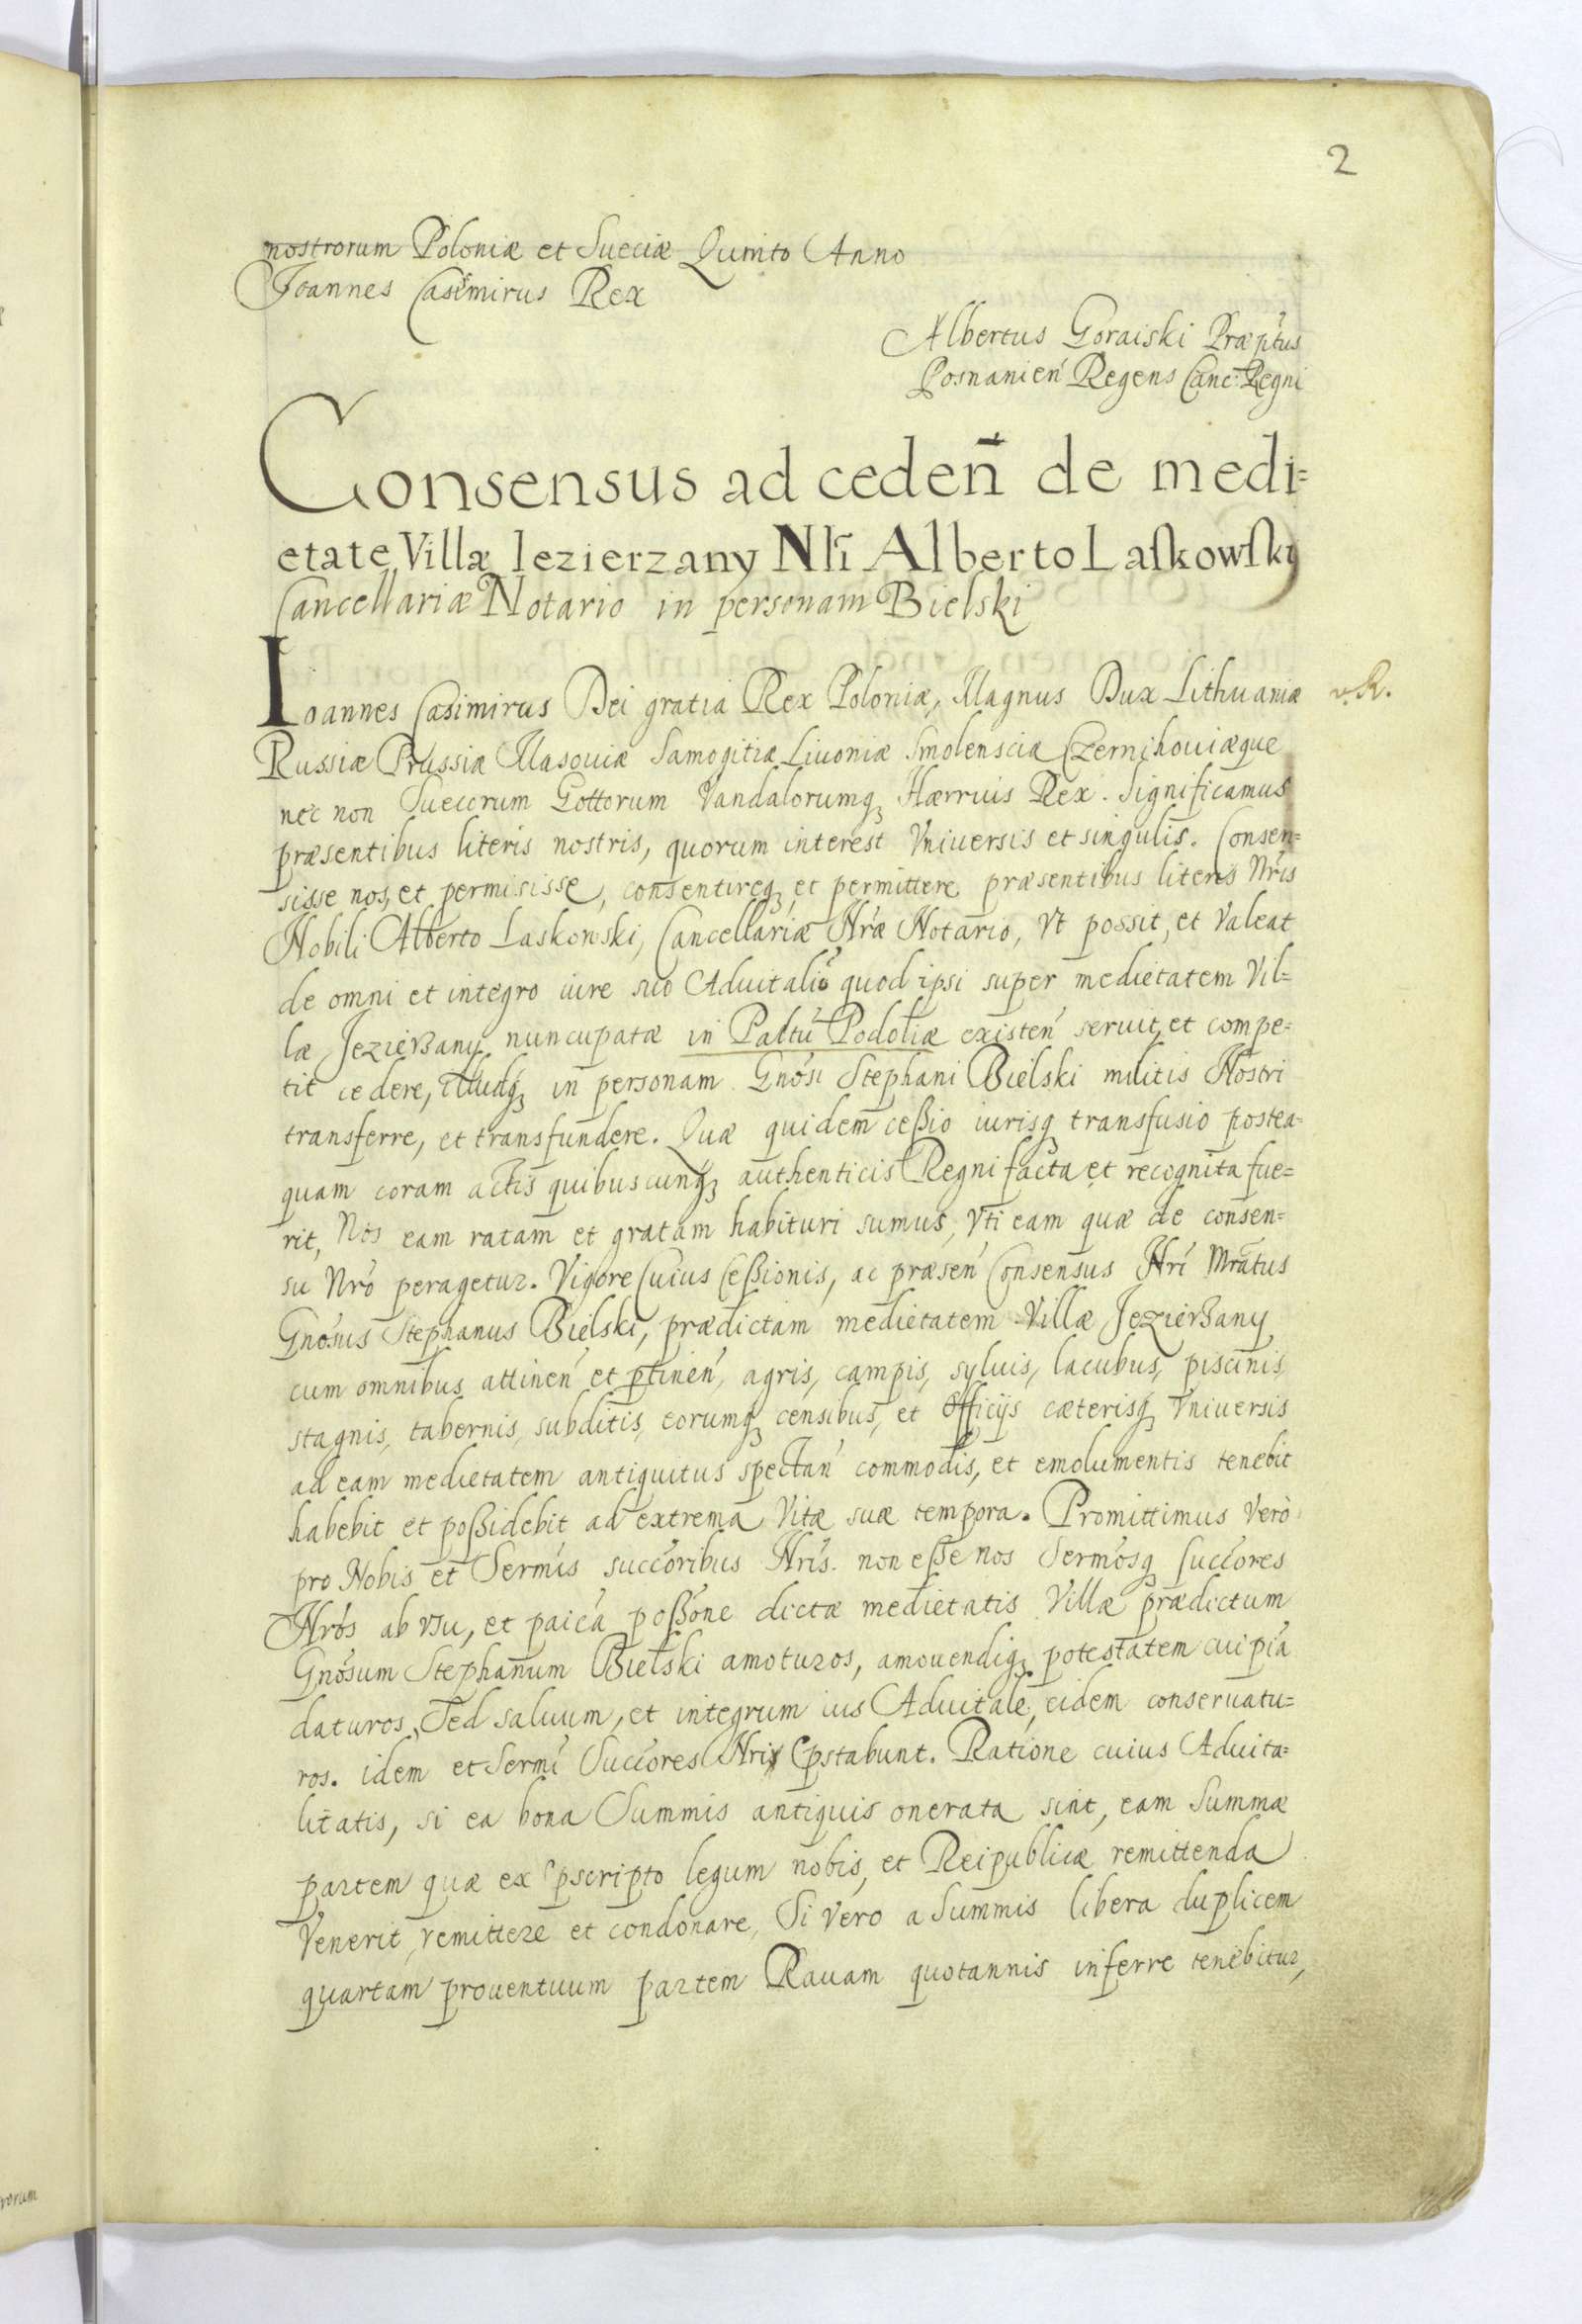 2
nostrorum Poloniæ et Sueciæ Quinto Anno
Joannes Casimirus Rex
Albertus Goraiski Præptus
Posnanień Regens Canc: Regni
Consensus ad cedeñ de medi=
etate Villæ Iezierzany Nli Alberto Laſkowſki
Cancellariæ Notario in personam Bielski
Ioannes Casimirus Dei gratia Rex Poloniæ, Magnus Dux Lithuaniæ
Russiæ Prussiæ Masouiæ Samogitiæ Liuoniæ Smolensciæ Czernihouiæque
nec non Suecorum Gottorum Vandalorumq, Hærrius Rex. Significamus
præsentibus literis nostris, quorum interest Vniuersis et singulis. Consen=
sisse nos, et permisisse, consentireq, et permittere præsentibus literis Nris
Nobili Alberto Laskowski, Cancellariæ Nræ Notario, Vt possit, et Valeat
de omni et integro iure suo Aduitali quod ipsi super medietatem Vil=
læ Jezierzany nuncupatæ in Paltu Podoliæ existeń seruit, et compe=
tit cedere, illudq, in personam Gnosi Stephani Bielski militis Nostri
transferre, et transfundere. Quæ quidem ceßio iurisq transfusio postea=
quam coram actis quibuscunq, authenticis Regni facta, et recognita fue=
rit, Nos eam ratam et gratam habituri sumus, Vti eam quæ de consen=
su Nro peragetur. Vigore Cuius Ceßionis, ac præseń Consensus Nri Mratus
Gnosus Stephanus Bielski, prædictam medietatem Villæ Jezierzany
cum omnibus attineń et ptineń, agris, campis, syluis, lacubus, piscinis,
stagnis, tabernis, subditis, eorumq, censibus, et Officijs cæterisq, Vniuersis
ad eam medietatem antiquitus spectań commodis, et emolumentis tenebit
habebit et poßidebit ad extrema Vitæ suæ tempora. Promittimus Verò
pro Nobis et Sermis succoribus Nris. non eße nos Sermosq Succores
Nros ab Vsu, et paica poßone dictæ medietatis Villæ prædictum
Gnosum Stephanum Bielski amoturos, amouendiq, potestatem cuipia
daturos, Sed saluum, et integrum ius Aduitale, eidem conseruatu=
ros. idem et Sermi Succores Nri pstabunt. Ratione cuius Aduita=
litatis, si ea bona Summis antiquis onerata sint, eam Summæ
partem quæ ex pscripto legum nobis, et Reipublicæ remittenda
Venerit, remittere et condonare, Si Vero a Summis libera duplicem
quartam prouentuum partem Rauam quotannis inferre tenebitur,